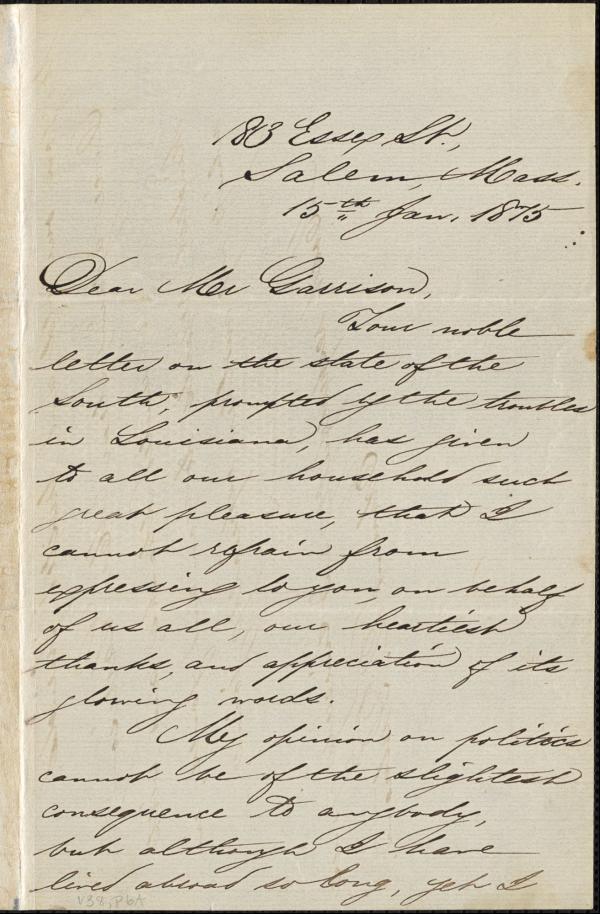 183 Essex St.,
Salem, Mass.
15th Jan, 1875
Dear Mr Garrison,
Your noble
letter on the state of the
South, prompted by the troubles
in Louisiana, has given
to all our household such
great pleasure, that I
cannot refrain from
expressing to you, on behalf
of us all, our heartiest
thanks, and appreciation of its
glowing words.
My opinion on politics
cannot be of the slightest
consequence to anybody,
but although I have
lived abroad so long, yet I
V38, P6A